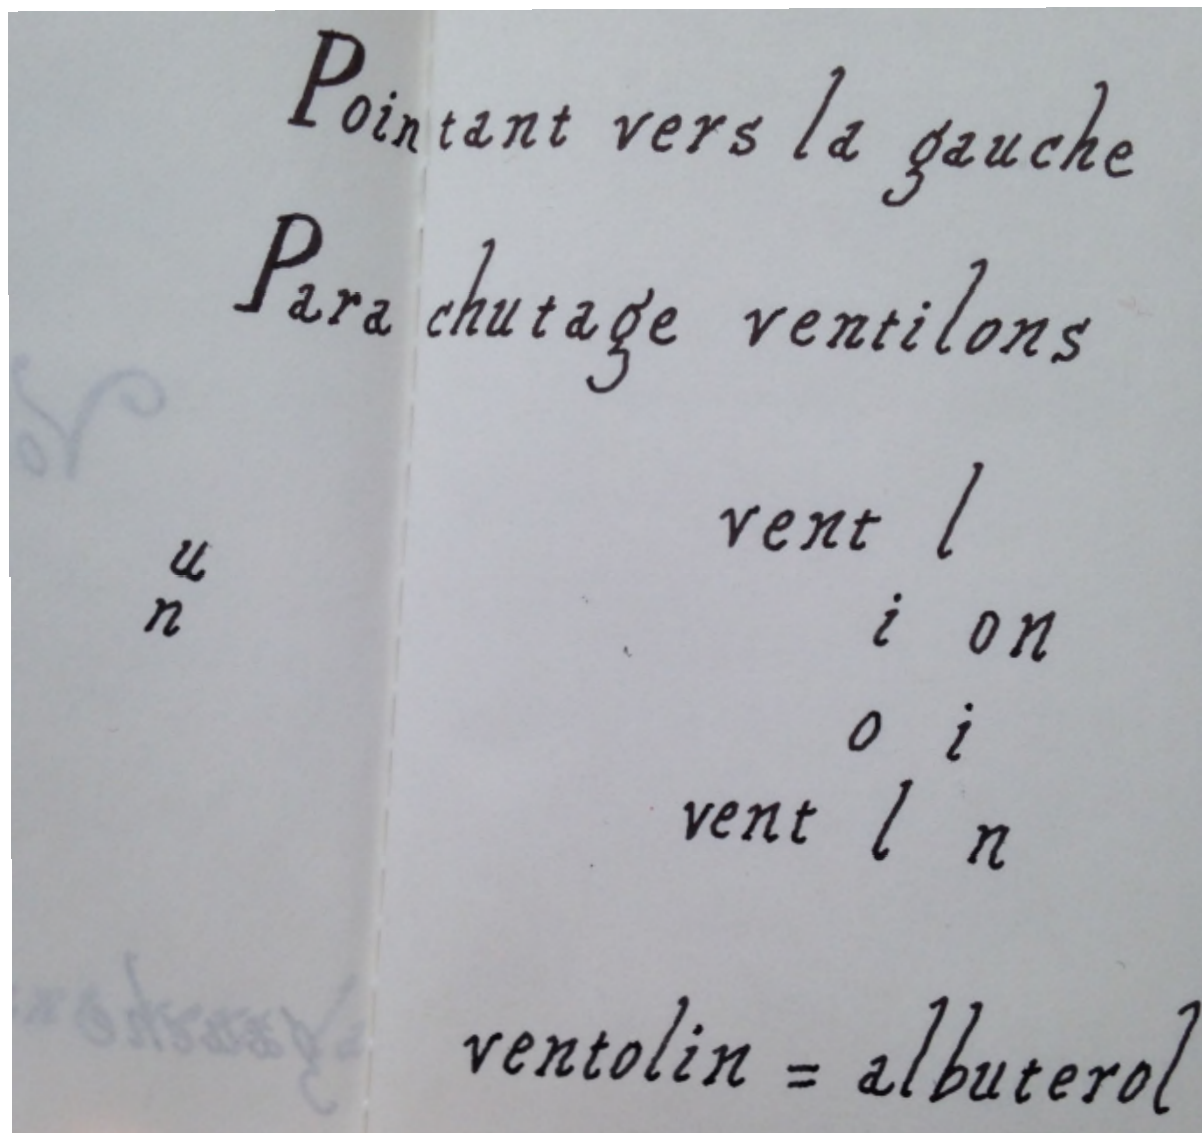 Pointant vers la gauche
Parachutage ventilons
vent l
u
n
i on
o i
vent l n
ventolin = albuterol